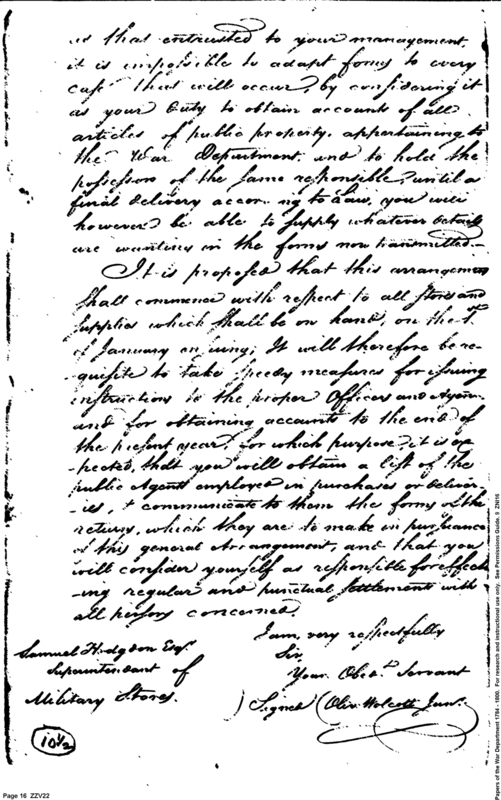 as that entrusted to your management,
it is impossible to adapt forms to every
case that will occur, by considering it
as your Duty to obtain accounts of all
articles of public property, appertaining to
the War Department, and to hold the
possessors of the same responsible, until a
final delivery accor ng to Law, you will
however be able to supply whatever Details
are wanting in the forms now transmitted.-
It is proposed that this arrangement
shall commence with respect to all stores and
supplies which shall be on hand, on the 1st
of January ensuing; It will therefore be re-
quisite to take speedy measures for issuing
instructions to the proper Officers and Agents
and for obtaining accounts to the end of
the present year, for which purpose, it is ex
-pected, that you will obtain a list of the
public Agents employed in purchases or deliver-
ies, & communicate to them the forms of the
returns, which they are to make in pursuance
of this general Arrangement, and that you
will consider yourself as responsible for effect
-ing regular and punctual settlements with
all persons concerned.
I am, very respectfully
Sir,
Your Obedt. Servant
Signed (Olivr. Wolcott Junr.
Samuel Hodgdon Esqr.
Superintendant of
Military Stores.
10½
Page 16 ZZV22
Papers of the War Department 1784 - 1800. For research and instructional use only. See Permissions Guide. 9 ZN16